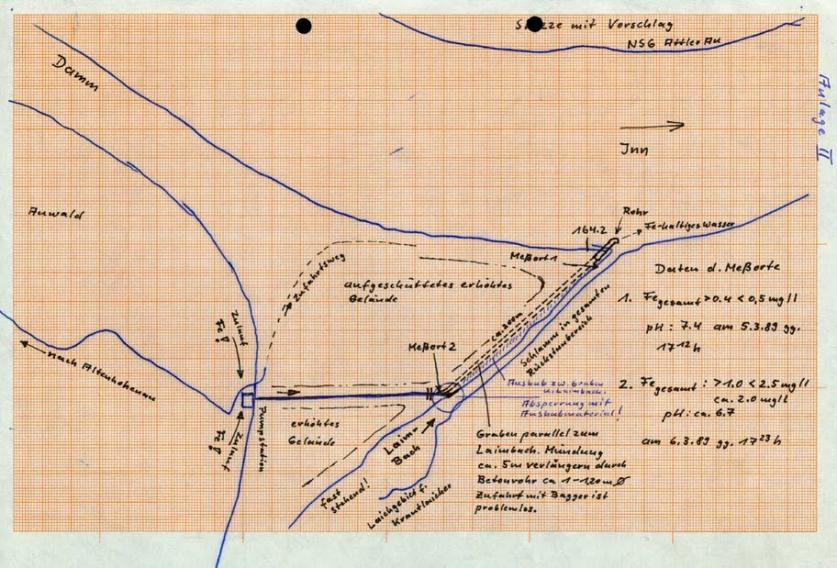 Skizze mit Vorschlag
NSG Attler Au
Anlage II
Damm
Inn
Auwald
Rohr
Fe-haltiges Wasser
164.2
Meßort 1
Zufahrtsweg
aufgeschüttetes erhöhtes
Gelände
Daten d. Meßorte
1. Fe gesamt > 0.4 < 0,5 mg/l
pH : 7.4 am 5.3.89 gg.
17 12 h
ca. 200m
Schlamm im gesamten
Rückstaubereich
Zulauf
Fe
nach Altenhohenau
Meßort 2
Aushub zw. Graben
u. Laimbach.
Absperrung mit
Aushubmaterial!
2. Fe gesamt : > 1.0 < 2.5 mg/l
ca. 2.0 mg/l
pH : ca. 6.7
am 6.3.89 gg. 17 23 h
Pumpstation
Zulauf
Fe
erhöhtes
Gelände
Laim-
Bach
Graben parallel zum
Laimbach. Mündung
ca. 5m verlängern durch
Betonrohr ca 1-120m Ø
Zufahrt mit Bagger ist
problemlos.
fast
stehend!
Laichgebiet f.
Krautlaicher